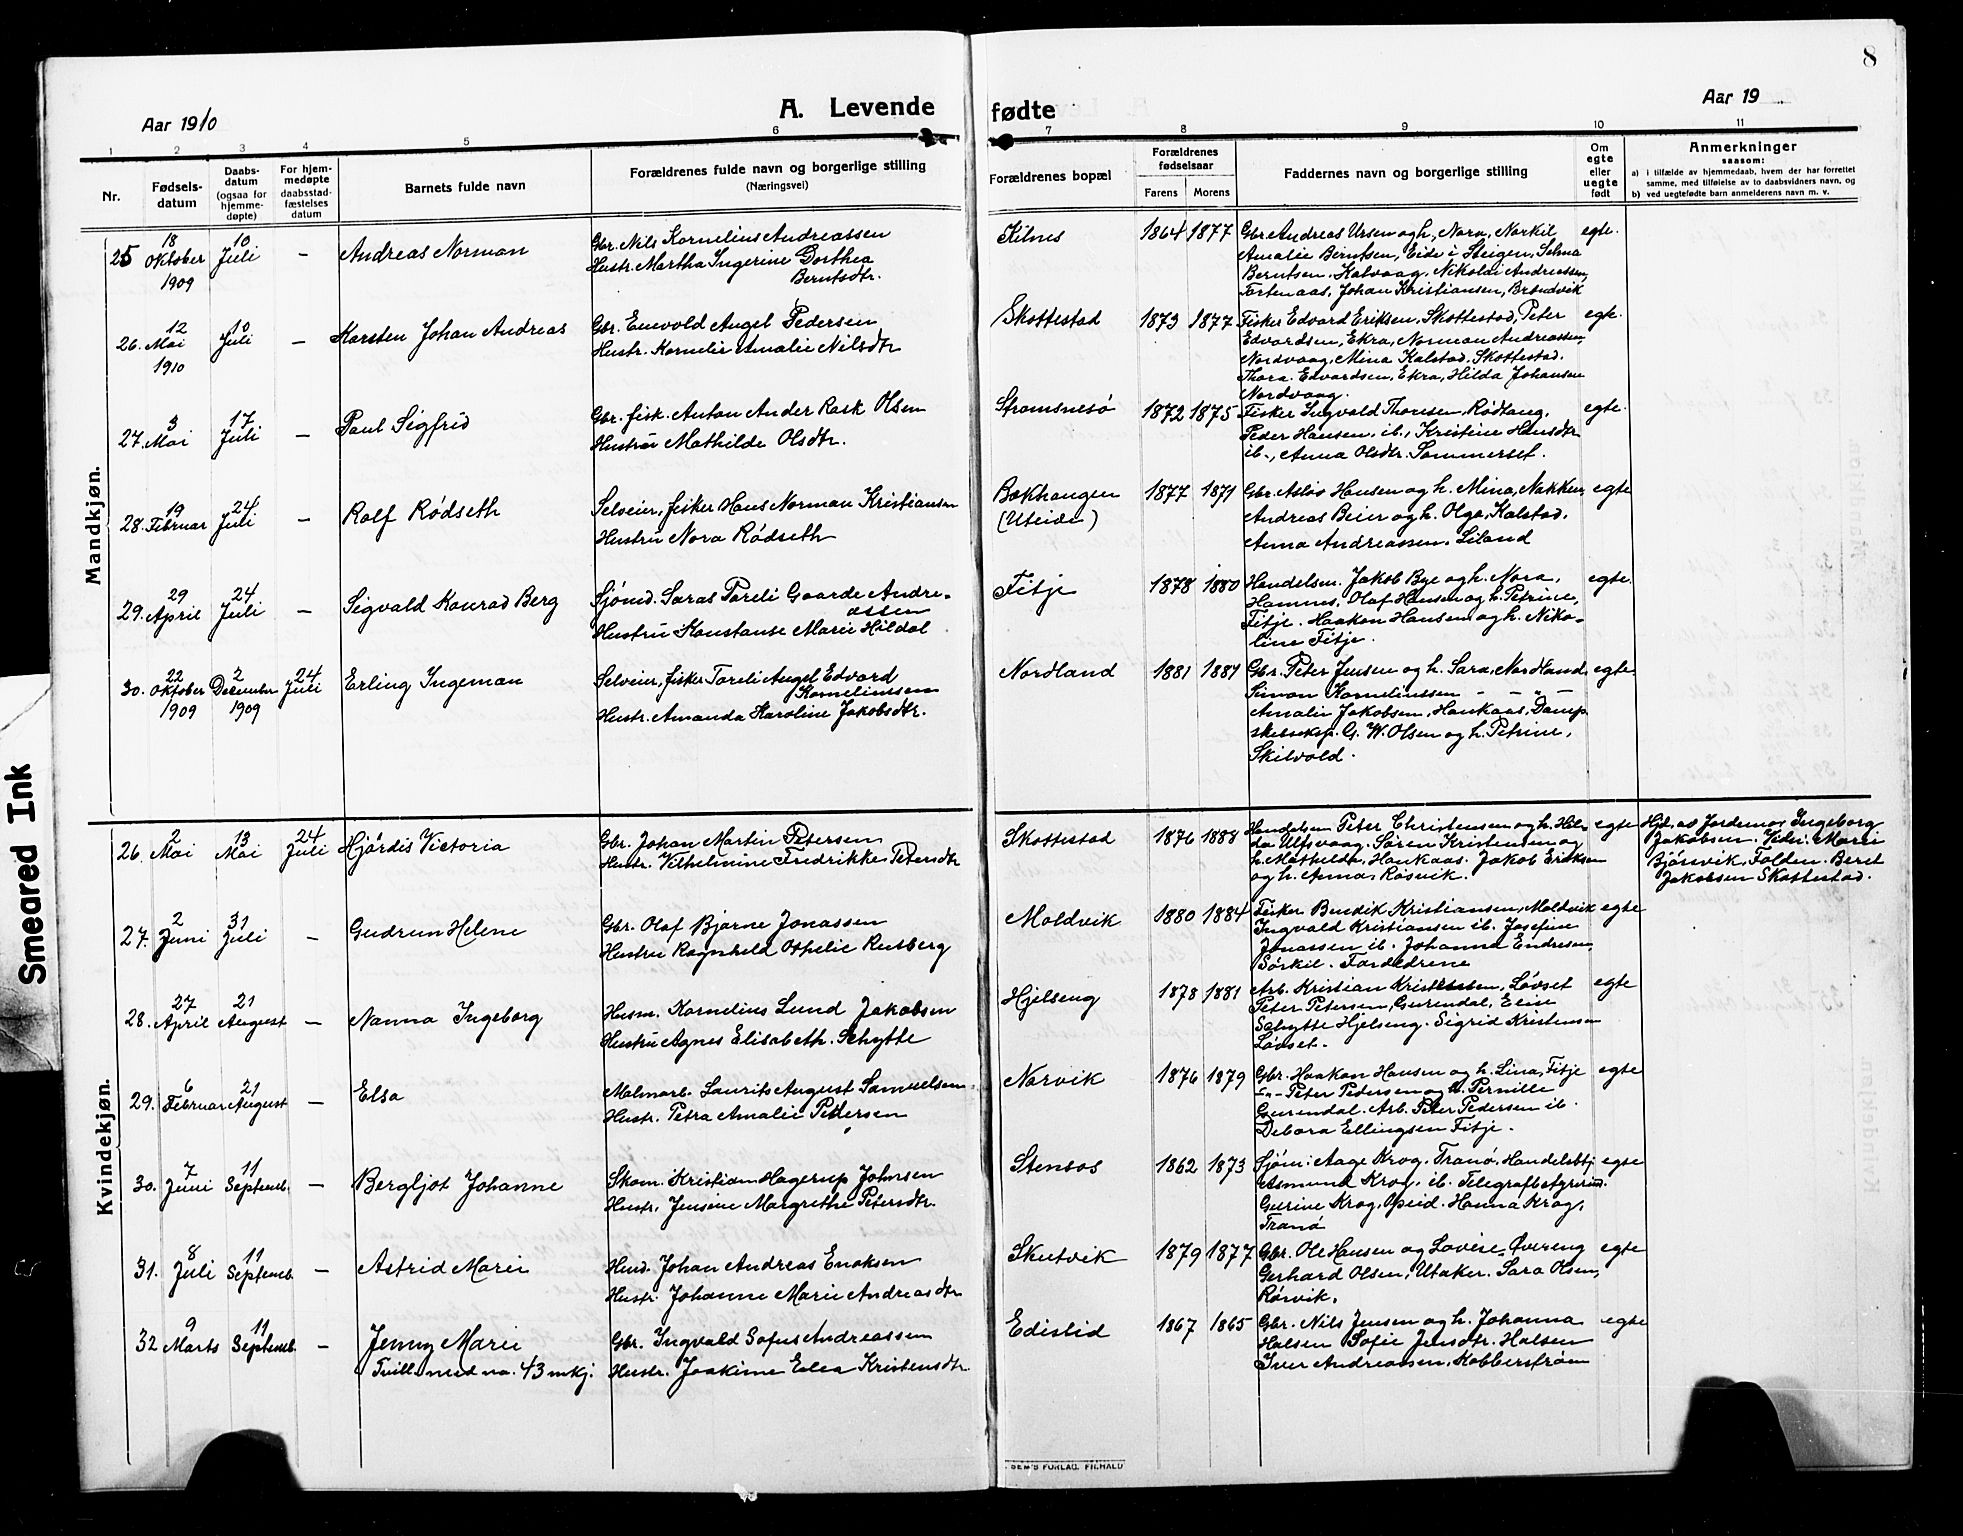 8
Aar 1910
A. Levende fødte
Aar 19
1 2 3 4 5 6 7 8 9 10 11
Nr.
Fødsels-
datum
Daabs-
datum
(ogsaa for
hjemme-
døpte)
For hjem-
medøpte
daabsstad-
fæstelses
datum
Barnets fulde navn
Forældrenes fulde navn og borgerlige stilling
(Næringsvei)
Forældrenes bopæl
Forældrenes
fødselsaar
Farens Morens
Faddernes navn og borgerlige stilling
Om
egte
eller
uegte
født
Anmerkninger
saasom:
a) i tilfælde av hjemmedaab, hvem der har forrettet
samme, med tilføielse av to daabsvidners navn, og
b) ved uegtefødte barn anmelderens navn m. v.
Mandkjøn.
25 18 Oktober 1909 10 Juli – Andreas Norman
Gbr. Nils Kornelius Andreassen
Hustr. Martha Ingerine Dorthea
Berntsdtr.
Kilnes 1864 1877
Gbr. Andreas Ursen og h. Nora, Norkil
Amalie Berntsen, Eide i Steigen, Selma
Berntsen, Kalvaag, Nikolai Andreassen
Tortenaas, Johan Kristiansen, Brændvik
egte.
26. 12 Mai 1910 10 Juli – Karsten Johan Andreas
Gbr. Enevold Angel Pedersen
Hustr. Kornelie Amalie Nilsdtr
Skottestad 1873 1877
Fisker Edvard Eriksen, Skottestad, Peter
Edvardsen, Ekra, Norman Andreassen
Nordvaag, Mina Kalstad, Skottestad.
Thora Edvardsen, Ekra, Hilda Johansen
Nordvaag.
egte.
27. 3 Mai 17 Juli – Paul Sigfrid
Gbr. fisk. Anton Ander Rask Olsen
Hustru Mathilde Olsdtr.
Stromsnesø 1872 1875
Fisker Ingvald Thonsen, Rødtang,
Peder Hansen, ib., Kristine Hansdtr
ib., Anna Olsdtr. Sommerset.
egte.
28. 19 Februar 24 Juli – Rolf Rødseth
Selveier, fisker Hans Norman Kristiansen
Hustru Nora Rødseth
Bøkhaugen
(Uteide)
1877 1871
Gbr. Asløv Hansen og h. Mina, Nakken
Andreas Beier og h. Olga, Kalstad,
Anna Andreassen, Liland
egte
29. 29 April 24 Juli – Sigvald Konrad Berg
Sjømd. Saras Toreli Gaarde Andre-
assen
Hustru Konstanse Marie Hildal
Fitje 1878 1880
Handelsm. Jakob Bye og h. Nora,
Hamnes, Olaf Hansen og h. Petrine,
Fitje. Haakon Hansen og h. Niko-
line Fitje.
egte.
30. 22 Oktober 1909 2 Desember 1909 24 Juli Erling Ingeman
Selveier, fisker Toreli Angel Edvard
Korneliussen
Hustr. Amanda Karoline Jakobsdtr.
Nordland 1881 1887
Gbr. Peter Jensen og h. Sara, Nordland
Simon Korneliussen – – " –
Amalie Jakobsen, Haukaas, Damp
skibseksp. G. W. Olsen og h. Petrine,
Skilvold.
egte
Kvindekjøn.
26. 2 Mai 13 Mai 24 Juli Hjørdis Victoria
Gbr. Johan Martin Petersen
Hustr. Vilhelmine Fredrikke Petersdtr
Skottestad 1876 1888
Handelsm Peter Christensen og h. Hil-
da Ulfsvaag. Søren Kristensen og
h. Mathilde, Haukaas. Jakob Eriksen
og h. Anna, Røsvik.
egte
Hjd. av Jordemor Ingeborg
Jakobsen. Vidn: Marie
Bjørsvik, Folden. Beret
Jakobsen Skottestad.
27. 2 Juni 31 Juli – Gudrun Helene
Gbr. Olaf Bjarne Jonassen
Hustru Ragnhild Othelie Rutberg
Moldvik 1880 1884
Fisker Bendik Kristiansen, Moldvik
Ingvald Kristiansen ib. Josefine
Jonassen ib. Johanna Endresen,
Sørkil. Forældrene
egte
28. 27 April 21 August – Nanna Ingeborg
Husm. Kornelius Lund Jakobsen
Hustru Agnes Elisabeth Schytte
Hjelseng 1878 1881
Arb. Kristian Kristensen, Løvset
Peter Petersen, Gurendal, Elise
Schytte Hjelseng. Sigrid Kristensen
Løvset.
egte
29. 6 Februar 21 August – Elsa
Malmarb. Laurits August Samuelsen
Hustr. Petra Amalie Pettersen
Narvik 1876 1879
Gbr. Haakon Hansen og h. Lina, Fitje
–"– Peter Pedersen og h. Pernille
Gurendal. Arb. Peter Pedersen ib.
Debora Ellingsen Fitje.
egte
30. 7 Juni 11 Septemb. – Bergljot Johanne
Skom. Kristian Hagerup Johnsen
Hustr. Jensine Margrethe Petersdtr.
Stensos 1862 1873
Sjøm: Aage Krog, Tranø, Handelsbtj
Asmund Krog, ib. Telegrafbstyrerin.
Gurine Krog, Opeid. Hanna Krog,
Tranø
egte
31. 8 Juli 11 Septemb. – Astrid Marie
Hmd. Johan Andreas Enoksen
Hustr. Johanne Marie Andreasdtr
Skutvik 1879 1877
Gbr. Ole Hansen og Lovise, Øvereng
Gerhard Olsen, Utaker. Sara Olsen,
Rørvik.
egte
32 9 Marts 11 Septemb. – Jenny Marie
Tvill. med no. 43 mkj.
Gbr. Ingvald Sofus Andreassen
Hustr. Joakime Edea Kristensdtr
Edistid 1867 1865
Gbr. Nils Jensen og h. Johanna
Halsen Sofie Jensdtr. Halsen
Iver Andreassen, Kobberstrøm
egte
SEM'S FORLAG. FR.HALD
Smeared Ink